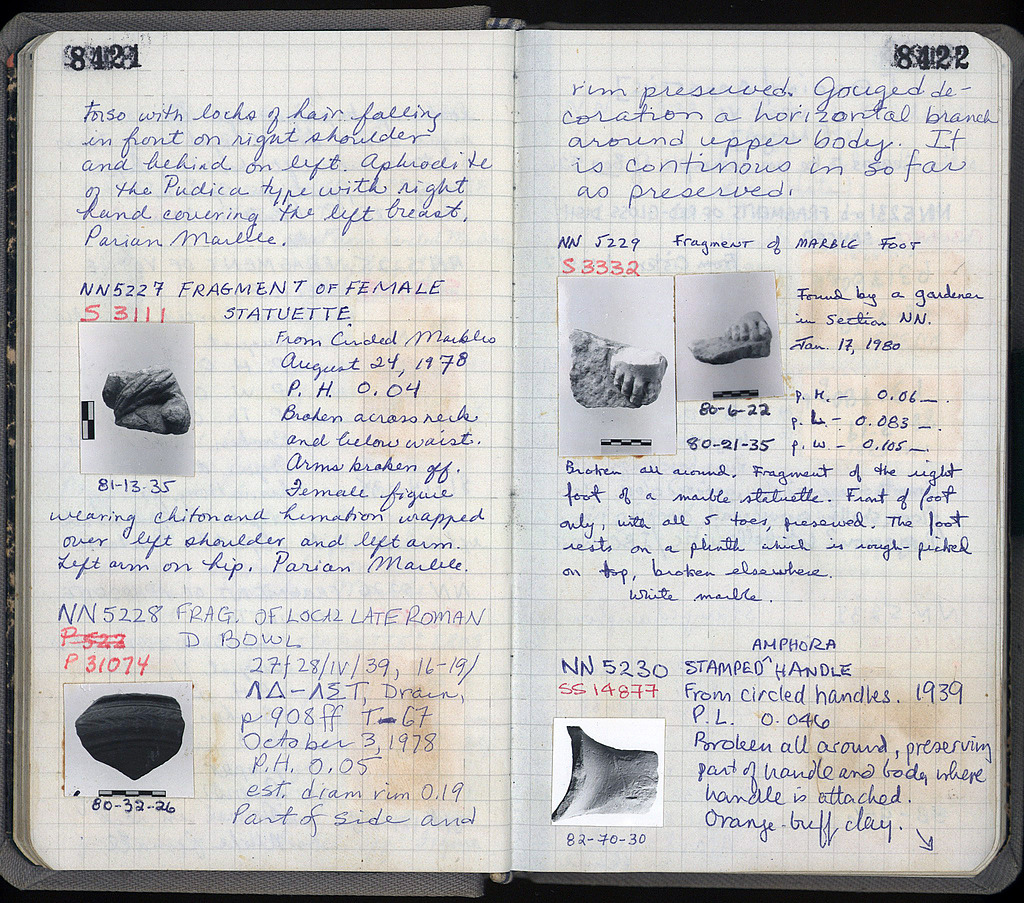 8421
Torso with locks of hair falling
in front on right shoulder
and behind on left. Aphrodite
of the Pudica type with right
hand covering the left breast.
Parian Marble.
NN5227 FRAGMENT OF FEMALE
S 3111 STATUETTE
From Circled Marbles
August 24, 1978
P. H. 0.04
Broken across neck
and below waist.
Arms broken off.
Female figure
81-13-35
wearing chiton and himation wrapped
over left shoulder and left arm.
Left arm on hip. Parian Marble.
NN5228 FRAG. OF LOCAL LATE ROMAN
P 522 D BOWL
P 31074
27 & 28/IV/39, 16-19/
ΛΔ-ΛΣΤ, Drain,
p 908 ff T-67
October 3, 1978
P.H. 0.05
est. diam rim 0.19
80-32-26
Part of side and
8422
rim preserved. Gouged de-
coration a horizontal branch
around upper body. It
is continous in so far
as preserved.
NN 5229 Fragment of MARBLE FOOT
S 3332
Found by a gardener
in Section NN.
Jan. 17, 1980
p. H. - 0.06 —.
80-6-22
p. L - 0.083 —.
80-21-35
p. w. - 0.105 —.
Broken all around. Fragment of the right
foot of a marble statuette. Front of foot
only, with all 5 toes, preserved. The foot
rests on a plinth which is rough-picked
on top, broken elsewhere.
White marble.
AMPHORA
NN 5230 STAMPED ^ HANDLE
SS 14877 From circled handles. 1939
P.L. 0.046
Broken all around, preserving
part of handle and body where
handle is attached.
Orange-buff clay.
82-70-30